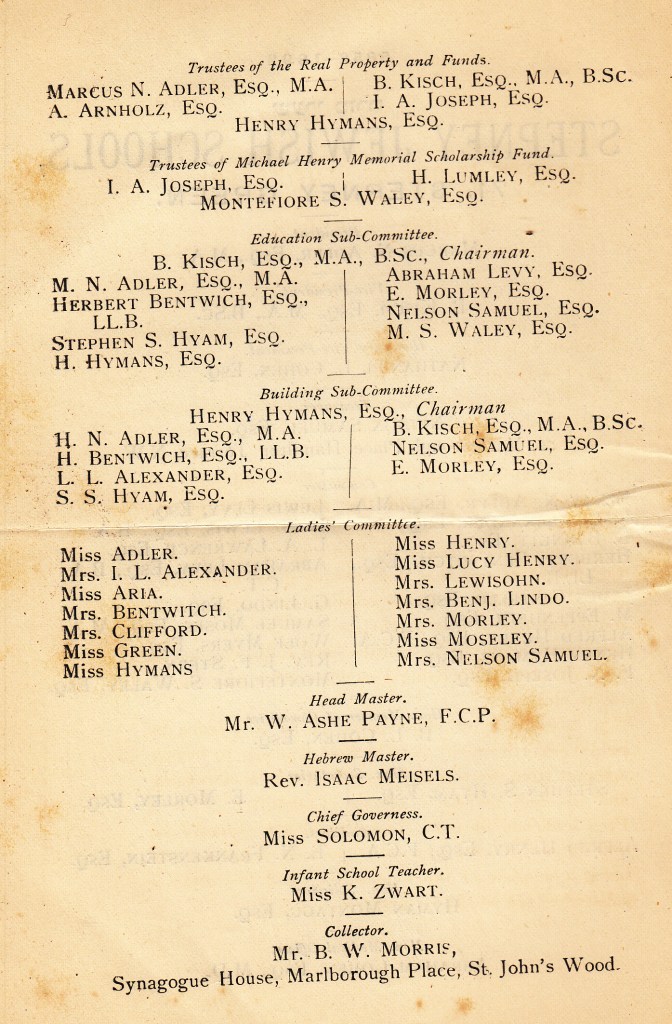 Trustees of the Real Property and Funds.
MARCUS N. ADLER, ESQ., M.A.
A. ARNHOLZ, ESQ.
B. KISCH, ESQ., M.A., B.Sc.
I. A. JOSEPH, ESQ.
HENRY HYMANS, ESQ.
Trustees of Michael Henry Memorial Scholarship Fund.
I. A. JOSEPH, ESQ.
H. LUMLEY, ESQ.
MONTEFIORE S. WALEY, ESQ.
Education Sub-Committee.
B. KISCH, ESQ., M.A., B.SC., Chairman.
M. N. ADLER, ESQ., M.A.
HERBERT BENTWICH, ESQ.,
LL.B.
STEPHEN S. HYAM, ESQ.
H. HYMANS, ESQ.
ABRAHAM LEVY, ESQ.
E. MORLEY, ESQ.
NELSON SAMUEL, ESQ.
M. S. WALEY, ESQ.
Building Sub-Committee.
HENRY HYMANS, ESQ., Chairman
H. N. ADLER, ESQ., M.A.
H. BENTWICH, ESQ., LL.B.
L. L. ALEXANDER, ESQ.
S. S. HYAM, ESQ.
B. KISCH, ESQ., M.A., B.SC.
NELSON SAMUEL, ESQ.
E. MORLEY, ESQ.
Ladies' Committee.
Miss ADLER.
Mrs. I. L. ALEXANDER.
Miss ARIA.
Mrs. BENTWITCH.
Mrs. CLIFFORD.
Miss GREEN.
Miss HYMANS
Miss HENRY.
Miss LUCY HENRY.
Mrs. LEWISOHN.
Mrs. BENJ. LINDO.
Mrs. MORLEY.
Miss MOSELEY.
Mrs. NELSON SAMUEL.
Head Master.
Mr. W. ASHE PAYNE, F.C.P.
Hebrew Master.
Rev. ISAAC MEISELS.
Chief Governess.
Miss SOLOMON, C.T.
Infant School Teacher.
Miss K. ZWART.
Collector.
Mr. B. W. MORRIS,
Synagogue House, Marlborough Place, St. John's Wood.